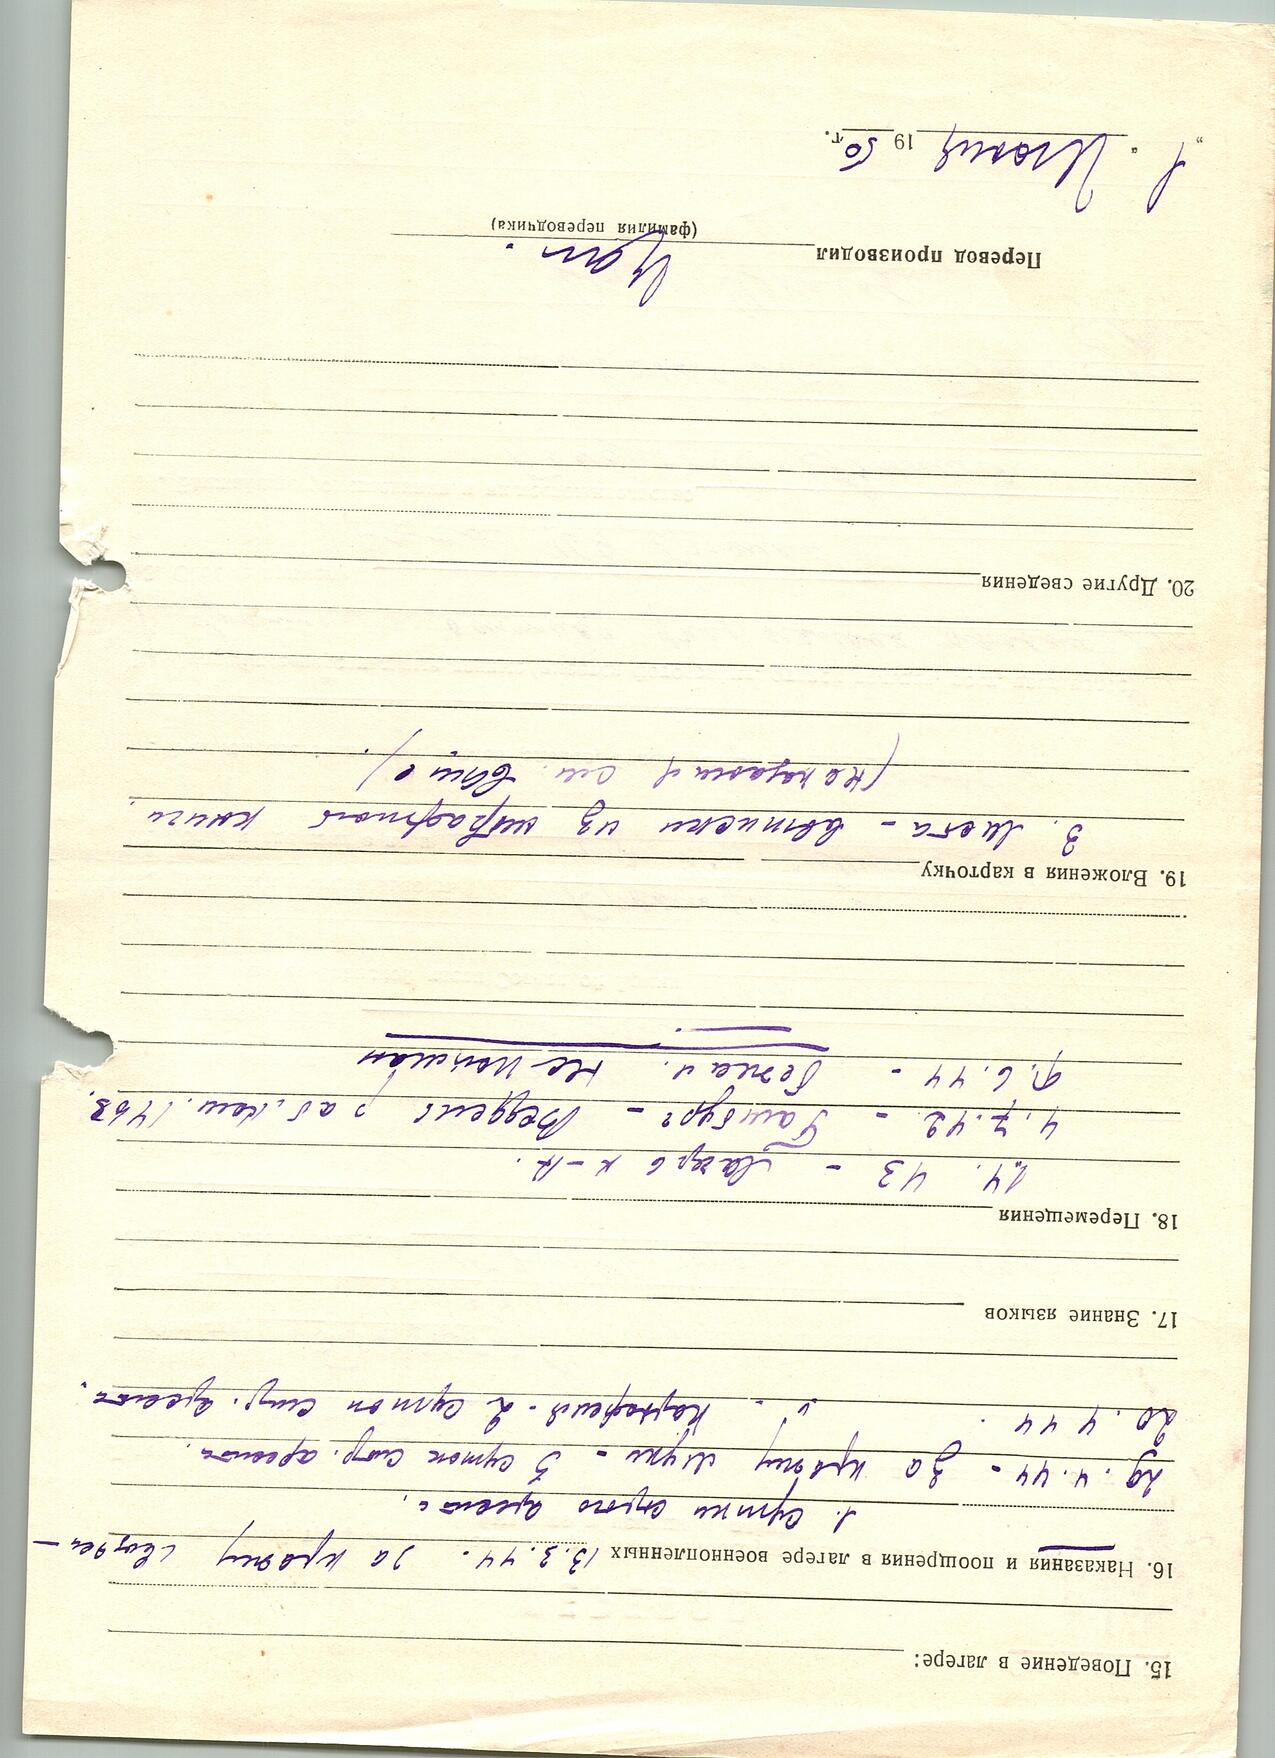 15. Поведение в лагере:
16. Наказания и поощрения в лагере военнопленных 13.3.44. за кражу
1. сутки строго ареста.
29.4.44 - За кражу муки - 5 суток стр. ареста.
20.4.44. - " - картофеля - 2 суток стр. ареста.
17. Знание языков
18. Перемещения
1.4. 43 - Лагерь X-A.
4.7.42. - Гамбург - Веддель раб. ком. 1463.
9.6.44 - бежал. Не пойман
19. Вложения в карточку
3. листа - выписки из штрафной книги.
(наказания см. выше).
20. Другие сведения
Перевод производил
(фамилия переводчика)
„1“ Июня 1950 г.